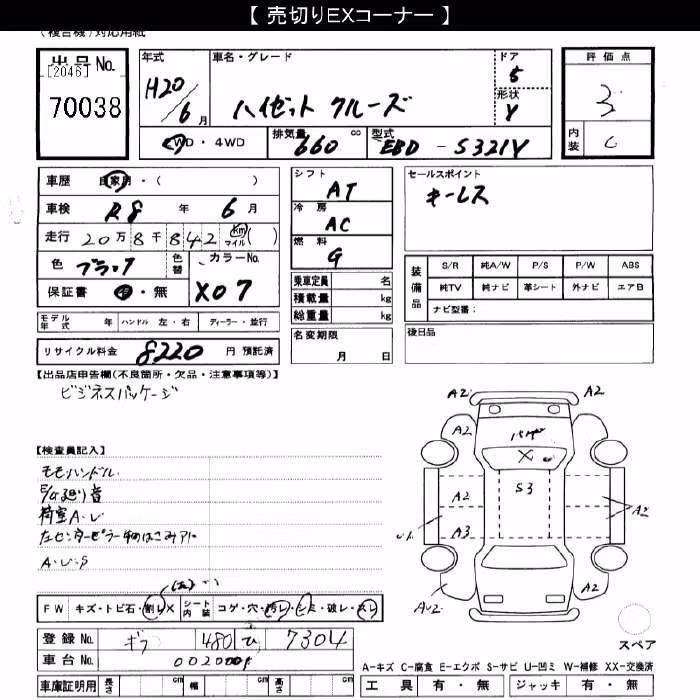 【 売切りEXコーナー 】
(複合機)対応用紙
出品No.
[2046]
70038
年式
H20/6 月
車名・グレード
ハイゼット クルーズ
ドア
5
形状
V
2WD・4WD
排気量
660 cc
型式
EBD - S321V
評価点
3
内装
C
車歴 自家用・( )
車検 R8 年 6 月
走行 20万8千842 Km マイル ( )
色 ブラック
色替
カラーNo.
X07
保証書 有・無
モデル年式 年 ハンドル 左・右 ディーラー・並行
リサイクル料金 8220 円 預託済
シフト
AT
冷房
AC
燃料
G
乗車定員 名
積載量 kg
総重量 kg
名変期限
月 日
セールスポイント
キーレス
装備品
S/R 純A/W P/S P/W ABS
純TV 純ナビ 革シート 外ナビ エアB
ナビ型番:
後日品
【出品店申告欄(不良箇所・欠品・注意事項等)】
ビジネスパッケージ
【検査員記入】
モモハンドル
E/G廻り音
荷室A・U
左センターピラー
A・U・S
FW キズ・トビ石・割レX シート内装 コゲ・穴・汚レ・シミ・破レ・スレ
登録No. 480 7304
車台No.
車庫証明用 長さ cm 幅 cm 高さ cm
A2 A2
A2 A2
X
S3
A2
A3
A2
A2
AU2
スペア
A-キズ C-腐食 E-エクボ S-サビ U-凹ミ W-補修 XX-交換済
工具 有・無 ジャッキ 有・無